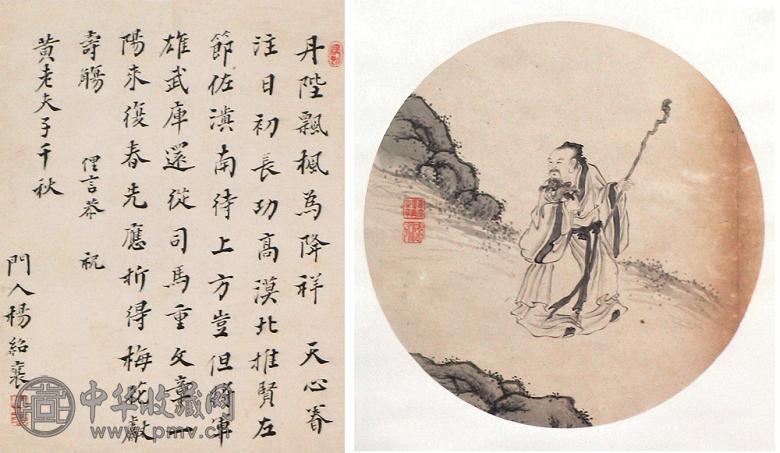 丹陛飄楓為降祥 天心眷
注日初長功高漠北推賢左
節佐滇南待上方豈但將軍
雄武庫還從司馬重文章一
陽來復春先應折得梅花獻
壽觴 俚言恭祝
黃老夫子千秋
門人楊紹襄
中华收藏网
www.pmv.cn